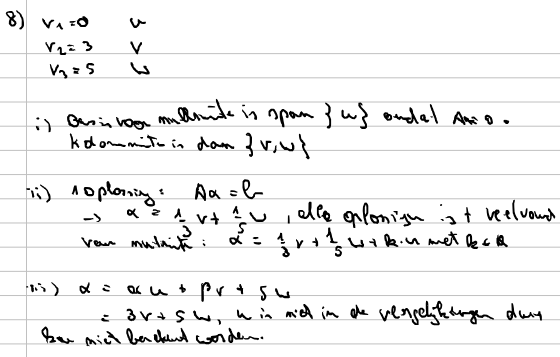 8) v₁ = 0 u
v₂ = 3 v
v₃ = 5 w
i) Basis voor nulruimte is span {u} omdat Au = 0.
kolomruimte is dan {v, w}
ii) 1 oplossing: Ax = b
→ x = 1/3 v + 1/5 w, alle oplossingen is + veelvoud
van nulruimte: x = 1/3 v + 1/5 w + k·u met k ∈ R
iii) x = αu + βv + 5w
= 3v + 5w, u is niet in de vergelijkingen dus
kan niet berekend worden.